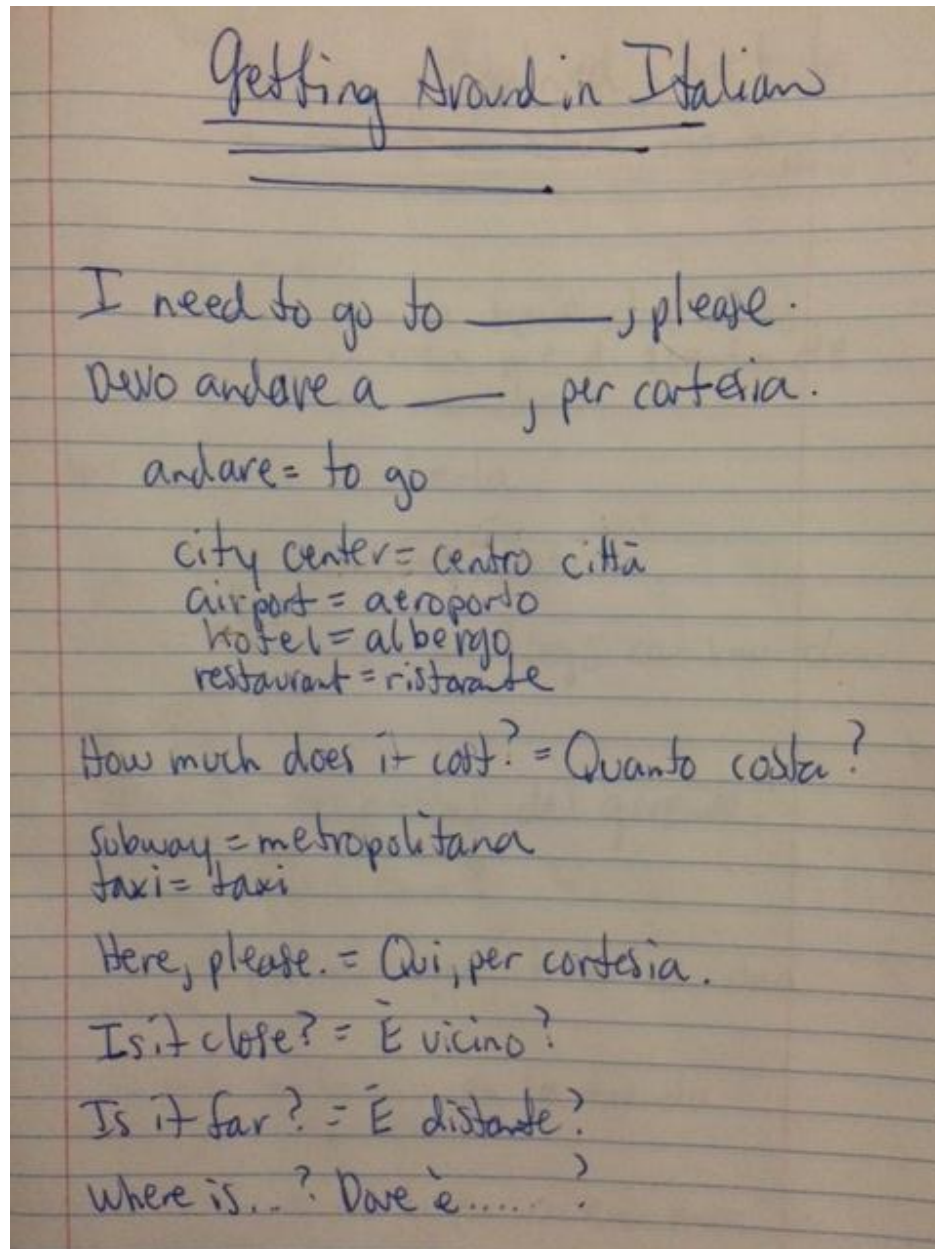 Getting Around in Italian
I need to go to ______, please.
Devo andare a ____, per cortesia.
andare = to go
city center = centro città
airport = aeroporto
hotel = albergo
restaurant = ristorante
How much does it cost? = Quanto costa?
subway = metropolitana
taxi = taxi
Here, please. = Qui, per cortesia.
Is it close? = È vicino?
Is it far? = È distante?
Where is...? Dove è......?